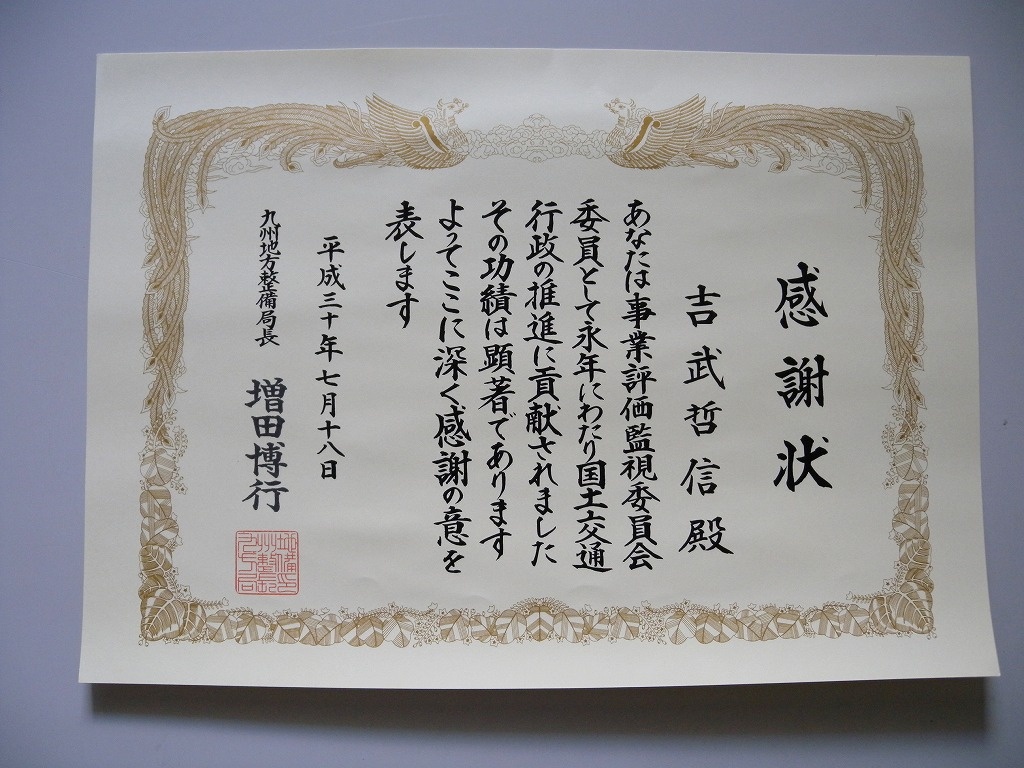 感謝状
吉武哲信殿
あなたは事業評価監視委員会
委員として永年にわたり国土交通
行政の推進に貢献されました
その功績は顕著であります
よってここに深く感謝の意を
表します
平成三十年七月十八日
九州地方整備局長 増田博行